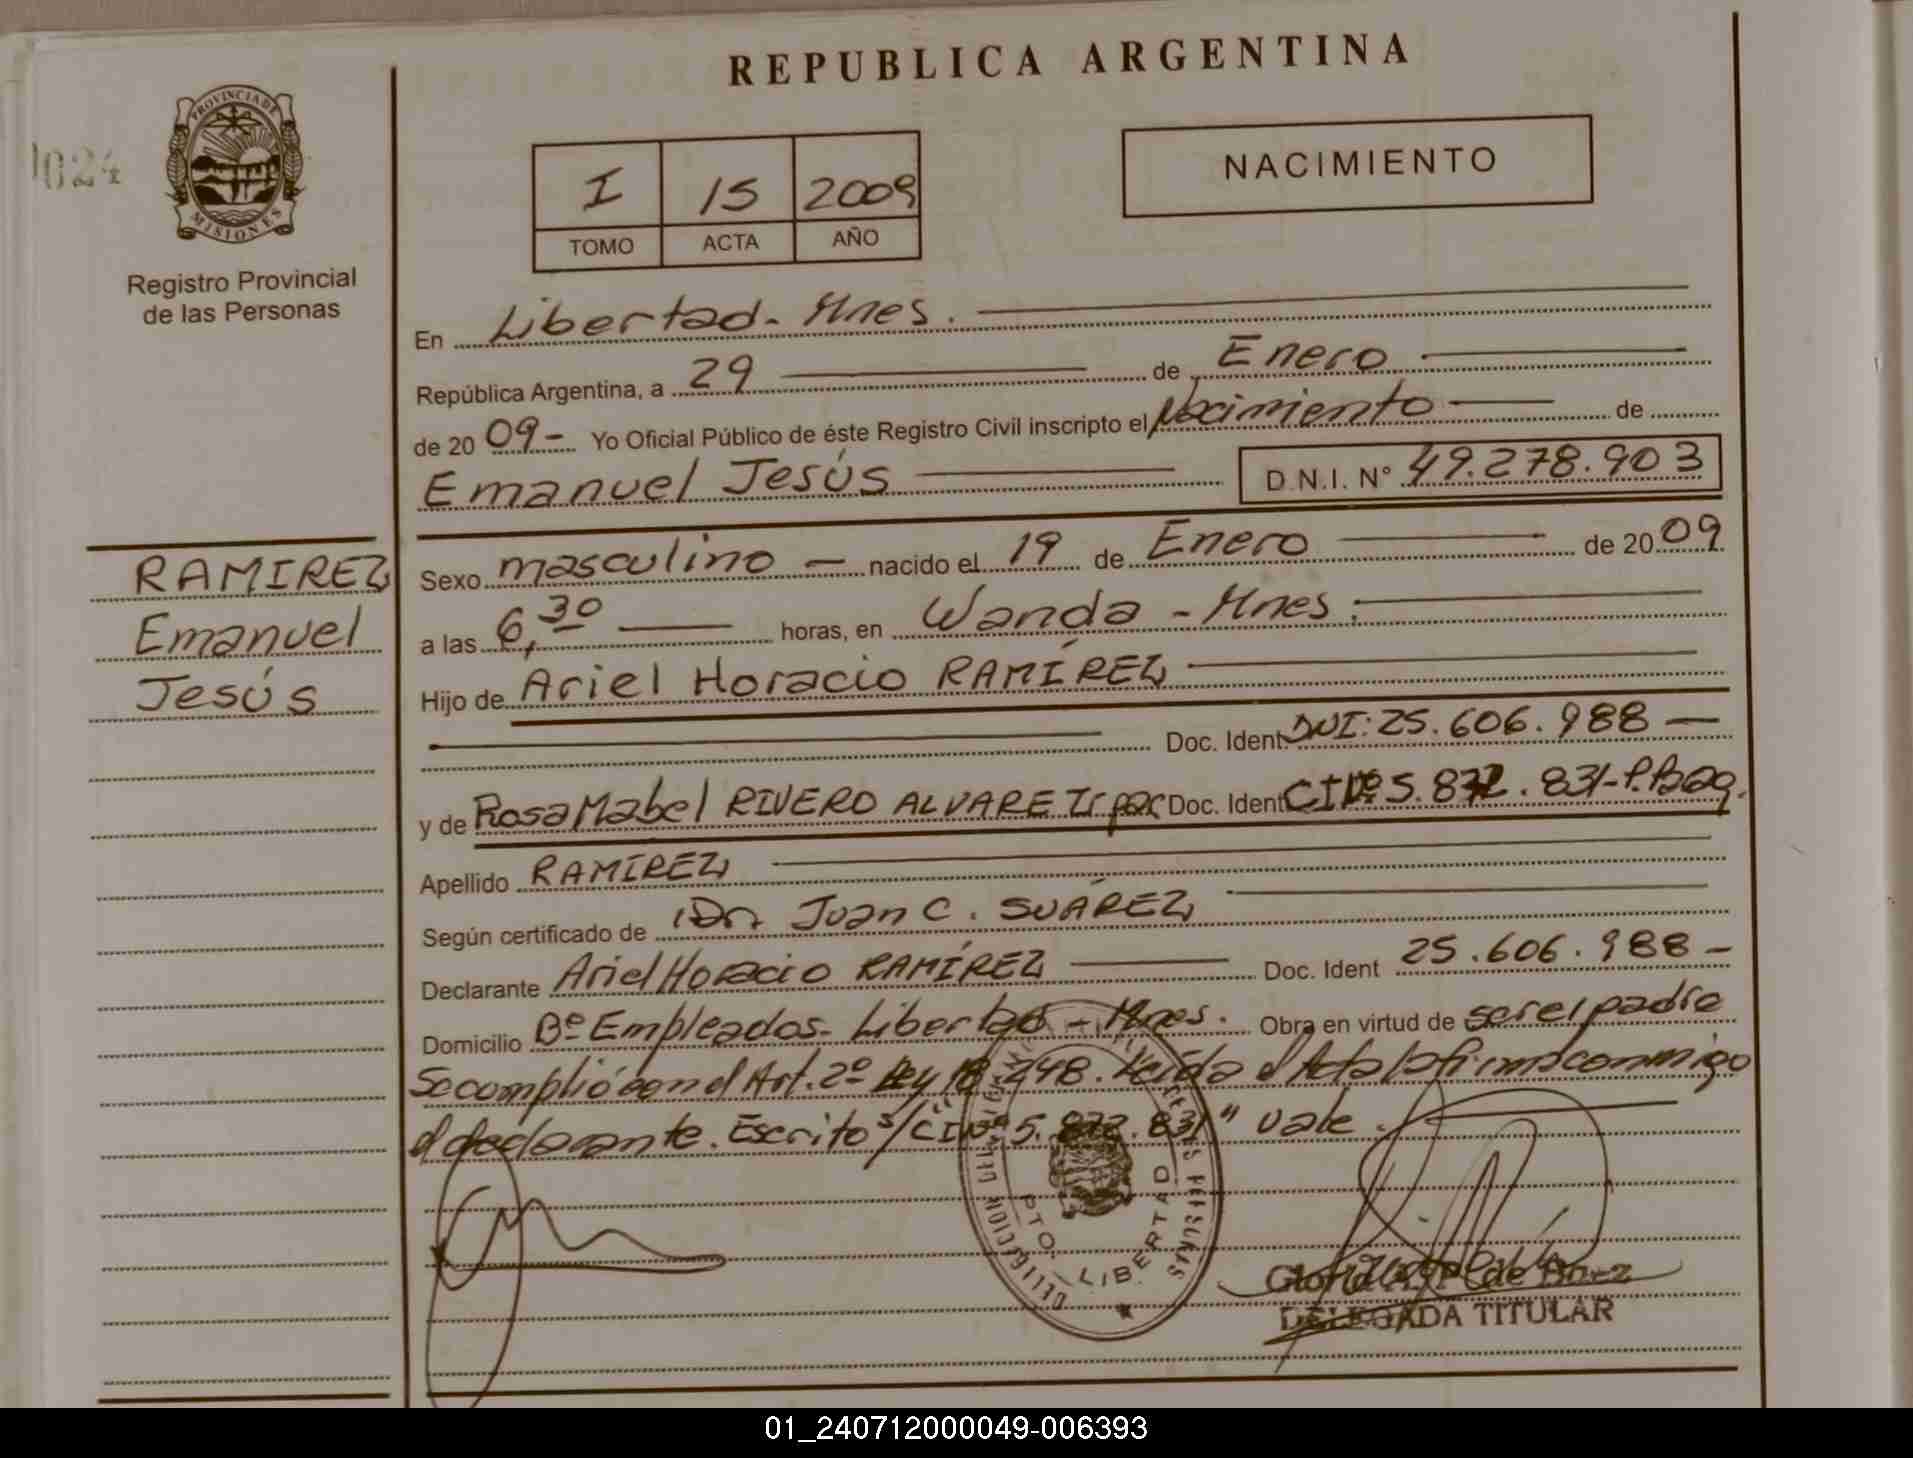 REPUBLICA ARGENTINA
PROVINCIA DE
MISIONES
1024
Registro Provincial
de las Personas
I 15 2009
TOMO ACTA AÑO
NACIMIENTO
En Libertad - Mnes.
República Argentina, a 29 de Enero
de 20 09- Yo Oficial Público de éste Registro Civil inscripto el Nacimiento de
Emanuel Jesús D.N.I. N° 49.278.903
RAMIREZ
Emanuel
Jesús
Sexo masculino nacido el 19 de Enero de 20 09
a las 6,30 horas, en Wanda - Mnes.
Hijo de Ariel Horacio RAMÍREZ
Doc. Ident. DNI: 25.606.988
y de Rosa Mabel RIVERO ALVAREZ Doc. Ident. CI Nº 5.872.831-P.Bag.
Apellido RAMÍREZ
Según certificado de Dr. Juan C. SUÁREZ
Declarante Ariel Horacio RAMÍREZ Doc. Ident 25.606.988-
Domicilio Bº Empleados - Libertad - Mnes. Obra en virtud de ser el padre
Se cumplió con el Art. 2º Ley 18.248. Leída el Acta la firma conmigo
el declarante. Escrito s/ "CI Nº 5.872.831" vale.
PTO. LIBERTAD
DE LAS PERSONAS
de Baez
DELEGADA TITULAR
01_240712000049-006393